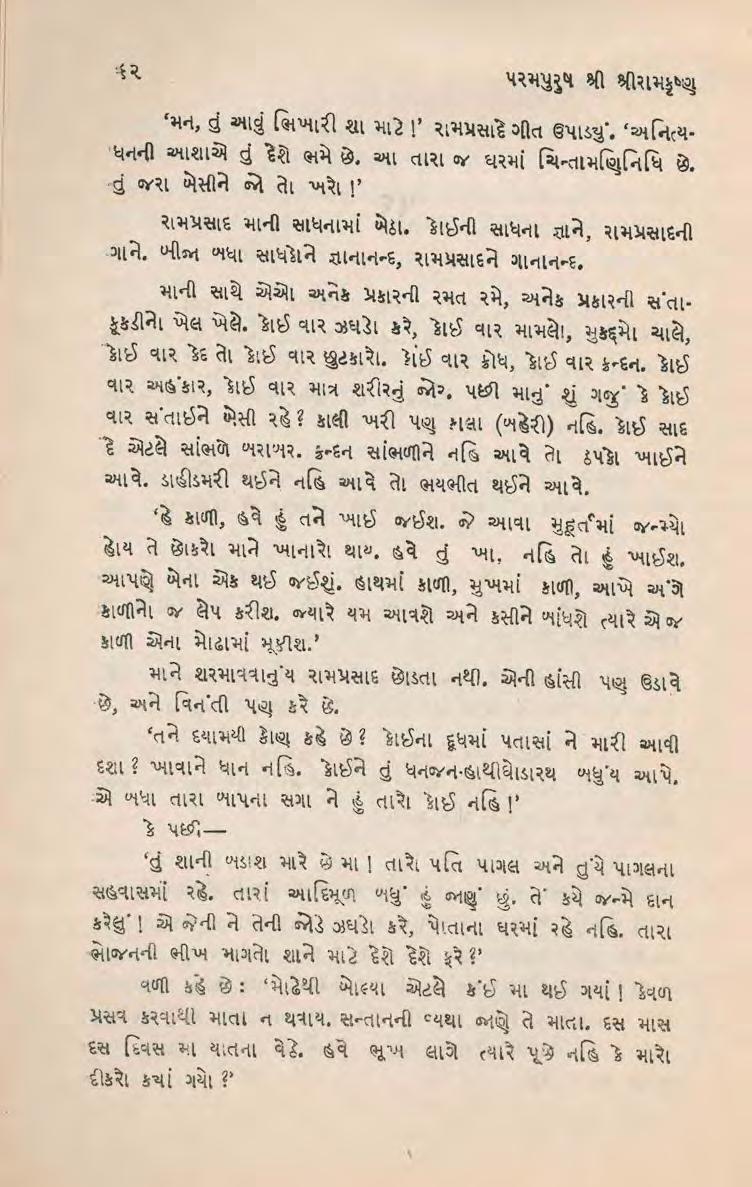 ૬૨
પરમપુરુષ શ્રી શ્રીરામકૃષ્ણ
‘મન, તું આવું ભિખારી શા માટે !’ રામપ્રસાદે ગીત ઉપાડયું. ‘અનિત્ય-
ધનની આશાએ તું દેશે ભમે છે. આ તારા જ ઘરમાં ચિન્તામણિનિધિ છે.
તું જરા બેસીને જો તો ખરો !’
રામપ્રસાદ માની સાધનામાં બેઠા. કોઈની સાધના જ્ઞાને, રામપ્રસાદની
ગાને. બીજા બધા સાધકોને જ્ઞાનાનન્દ, રામપ્રસાદને ગાનાનન્દ.
માની સાથે એઓ અનેક પ્રકારની રમત રમે, અનેક પ્રકારની સંતા-
કૂકડીનો ખેલ ખેલે. કોઈ વાર ઝઘડો કરે, કોઈ વાર મામલો, મુકદ્દમો ચાલે,
કોઈ વાર કેદ તો કોઈ વાર છુટકારો. કોઈ વાર ક્રોધ, કોઈ વાર ક્રન્દન. કોઈ
વાર અહંકાર, કોઈ વાર માત્ર શરીરનું જોર. પછી માનું શું ગજું કે કોઈ
વાર સંતાઈને બેસી રહે ? કાલી ખરી પણ કાલા (બહેરી) નહિ. કોઈ સાદ
દે એટલે સાંભળે બરાબર. ક્રન્દન સાંભળીને નહિ આવે તો ઠપકો ખાઈને
આવે. ડાહીડમરી થઈને નહિ આવે તો ભયભીત થઈને આવે.
‘હે કાળી, હવે હું તને ખાઈ જઈશ. જે આવા મુહૂર્તમાં જન્મ્યો
હોય તે છોકરો માને ખાનારો થાય. હવે તું ખા, નહિ તો હું ખાઈશ.
આપણે બેના એક થઈ જઈશું. હાથમાં કાળી, મુખમાં કાળી, આખે અંગે
કાળીનો જ લેપ કરીશ. જ્યારે યમ આવશે અને કસીને બાંધશે ત્યારે એ જ
કાળી એના મોઢામાં મૂકીશ.’
માને શરમાવવાનુંય રામપ્રસાદ છોડતા નથી. એની હાંસી પણ ઉડાવે
છે, અને વિનંતી પણ કરે છે.
‘તને દયામયી કોણ કહે છે ? કોઈના દૂધમાં પતાસાં ને મારી આવી
દશા ? ખાવાને ધાન નહિ. કોઈને તું ધનજન-હાથીઘોડારથ બધુંય આપે.
એ બધા તારા બાપના સગા ને હું તારો કોઈ નહિ !’
કે પછી—
‘તું શાની બડાશ મારે છે મા ! તારો પતિ પાગલ અને તુંયે પાગલના
સહવાસમાં રહે. તારાં આદિમૂળ બધું હું જાણું છું. તેં કયે જન્મે દાન
કરેલું ! એ જેની ને તેની જોડે ઝઘડો કરે, પોતાના ઘરમાં રહે નહિ. તારા
ભોજનની ભીખ માગતો શાને માટે દેશે દેશે ફરે ?’
વળી કહે છે : ‘મોઢેથી બોલ્યા એટલે કંઈ મા થઈ ગયાં ! કેવળ
પ્રસવ કરવાથી માતા ન થવાય. સન્તાનની વ્યથા જાણે તે માતા. દસ માસ
દસ દિવસ મા યાતના વેઠે. હવે ભૂખ લાગે ત્યારે પૂછે નહિ કે મારો
દીકરો કયાં ગયો ?’